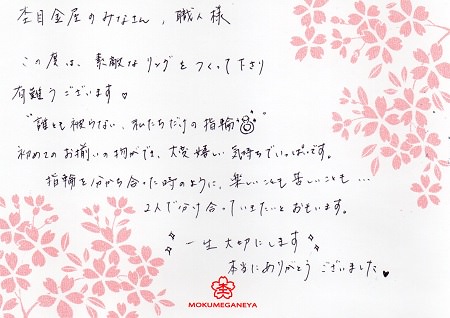 杢目金屋のみなさん、職人様
この度は、素敵なリングをつくって下さり
有難うございます♡
"誰とも被らない、私たちだけの指輪"
初めてのお揃いの物がで、大変嬉しい気持ちでいっぱいです。
指輪を分かち合った時のように、楽しいことも苦しいことも…
2人で分け合っていきたいとおもいます。
一生大切にします
本当にありがとうございました♥
MOKUMEGANEYA